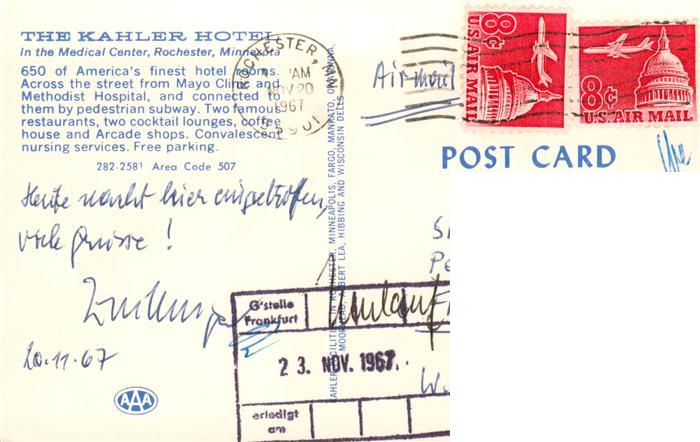 THE KAHLER HOTEL
In the Medical Center, Rochester, Minnesota
650 of America's finest hotel rooms.
Across the street from Mayo Clinic and
Methodist Hospital, and connected to
them by pedestrian subway. Two famous
restaurants, two cocktail lounges, coffee
house and Arcade shops. Convalescent
nursing services. Free parking.
282-2581 Area Code 507
Heute nacht hier eingetroffen,
viele Grüsse!
20.11.67
AAA
ROCHESTER, MINN.
AM
NOV 20
1967
55901
Air mail
8¢
U.S. AIR MAIL
8¢
U.S. AIR MAIL
POST CARD
KAHLER FACILITIES IN ROCHESTER, MINNEAPOLIS, FARGO, MANKATO, OWATONNA,
MOORHEAD, ALBERT LEA, HIBBING AND WISCONSIN DELLS
G'stelle
Frankfurt
Umlauf
23. NOV. 1967
erledigt
am